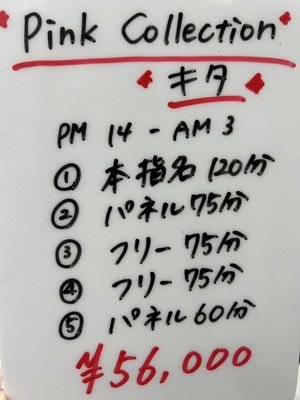 Pink Collection
キタ
PM 14 - AM 3
① 本指名 120分
② パネル 75分
③ フリー 75分
④ フリー 75分
⑤ パネル 60分
¥56,000